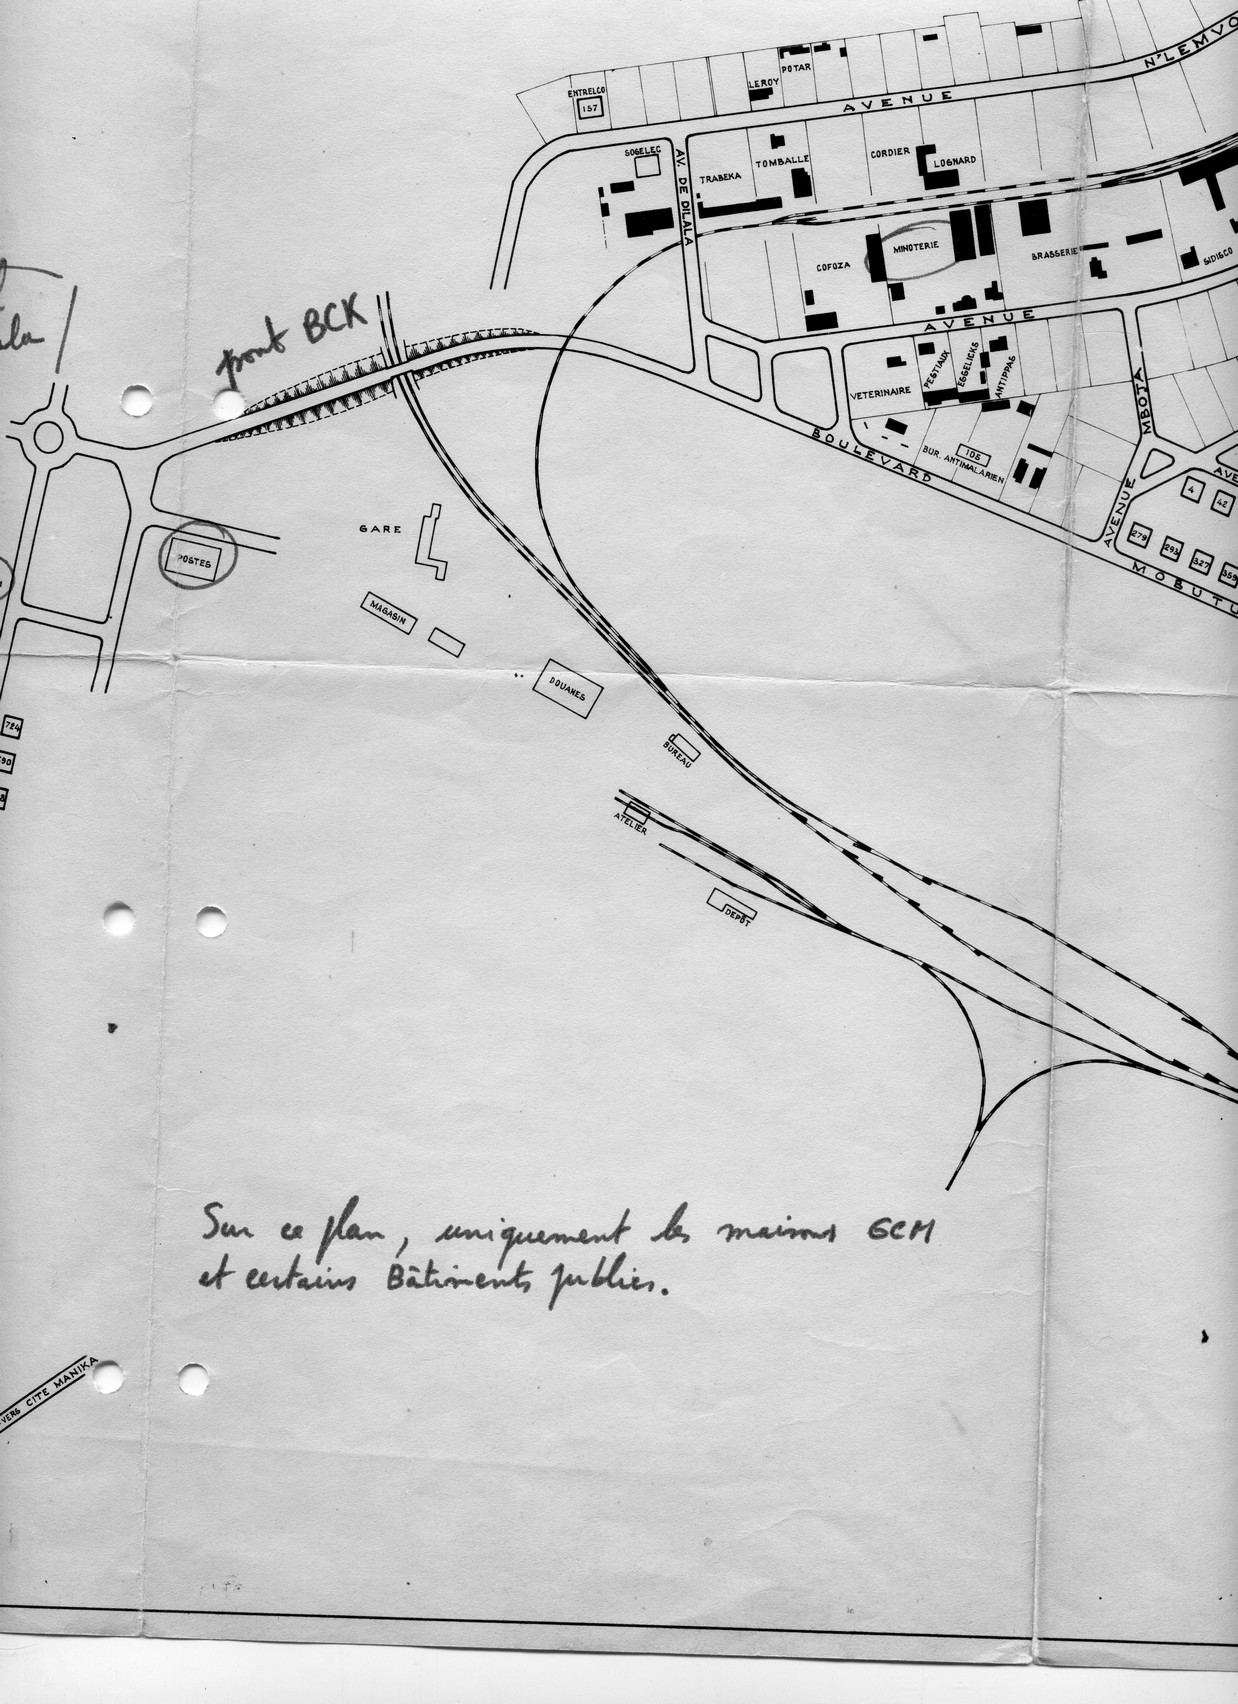 N'LEMVO
AVENUE
POTAR
LEROY
ENTRELCO
157
SOGELEC
AV. DE DILALA
TRABEKA
TOMBALLE
CORDIER
LOGNARD
COFOZA
MINOTERIE
BRASSERIE
SIDISCO
AVENUE
pont BCK
VETERINAIRE
PESTIAUX
EGGELICKS
ANTIPPAS
BUR. ANTIMALARIEN
105
BOULEVARD
MOBUTU
AVENUE
MBOTA
AVE
4
42
279
293
327
359
GARE
POSTES
MAGASIN
DOUANES
BUREAU
ATELIER
DEPÔT
724
Sur ce plan, uniquement les maisons GCM
et certains Bâtiments publics.
VERS CITE MANIKA